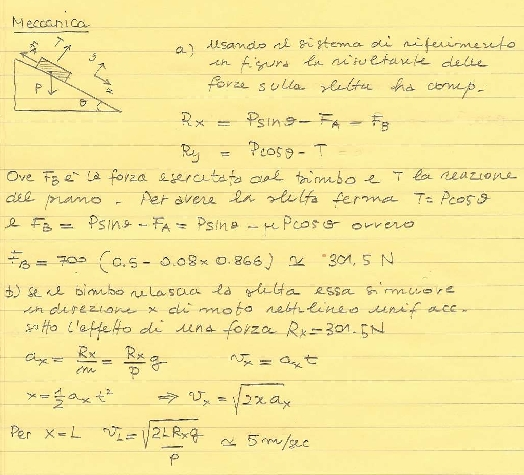 Meccanica
F_A
T
y
x
P
θ
a) Usando il sistema di riferimento
in figura la risultante delle
forze sulla slitta ha comp.
Rx = Psinθ - F_A - F_B
Ry = Pcosθ - T
Ove F_B è la forza esercitata dal bimbo e T la reazione
del piano. Per avere la slitta ferma T = Pcosθ
e F_B = Psinθ - F_A = Psinθ - μPcosθ ovvero
F_B = 700 (0.5 - 0.08 x 0.866) ≃ 301.5 N
b) se il bimbo rilascia la slitta essa si muove
in direzione x di moto rettilineo unif acc.
sotto l'effetto di una forza Rx = 301.5 N
a_x = Rx/m = Rx/P g v_x = a_x t
x = 1/2 a_x t² ⇒ v_x = √(2x a_x)
Per x = L v_L = √(2L Rx g/P) ≃ 5 m/sec